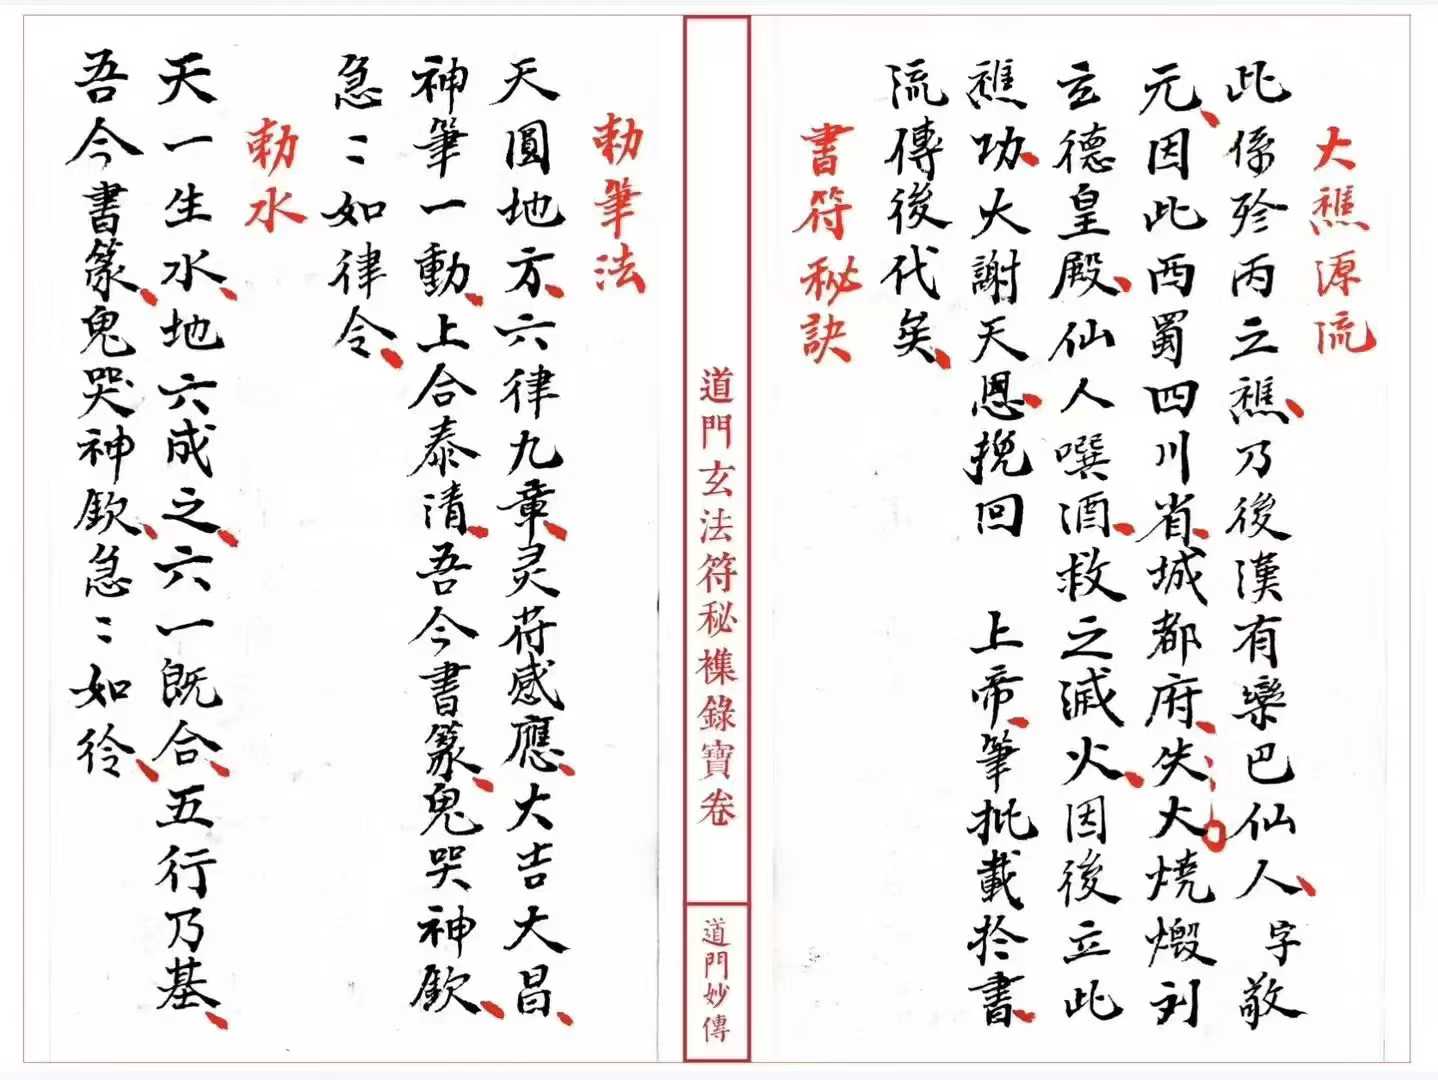 大醮源流
此係殄丙之醮乃後漢有樂巴仙人字敬
元因此西蜀四川省城都府失火燒燬刘
玄德皇殿仙人噀酒救之滅火因後立此
醮功火謝天恩挽回 上帝筆批載於書
流傳後代矣
書符秘訣
道門玄法符秘襍錄寶卷
道門妙傳
勅筆法
天圓地方六律九章灵符感應大吉大昌
神筆一動上合泰清吾今書篆鬼哭神欽
急〻如律令
勅水
天一生水地六成之六一既合五行乃基
吾今書篆鬼哭神欽急〻如彾